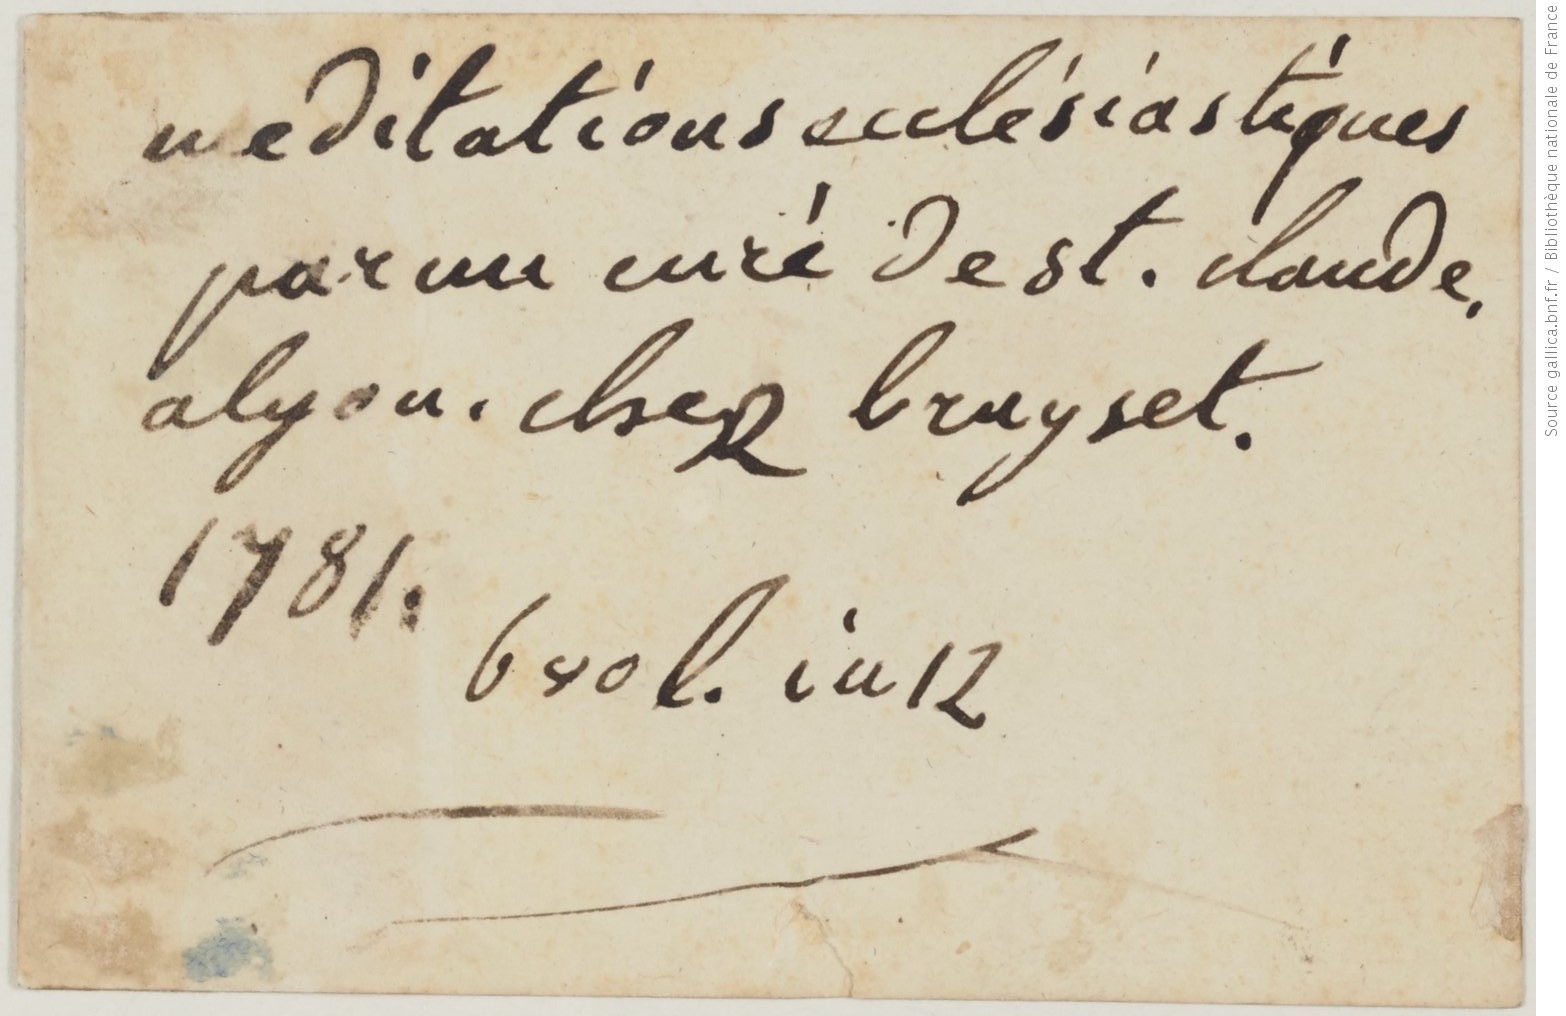 meditations ecclésiastiques
par un curé de st. claude,
a lyon. chez bruyset.
1781.
6 vol. in 12
Source gallica.bnf.fr / Bibliothèque nationale de France